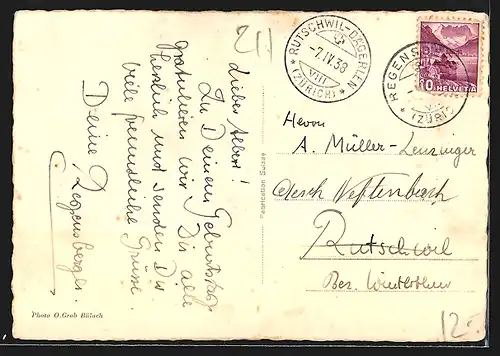 Lieber Albert!
Zu Deinem Geburtstag
gratulieren wir Dir alle
herzlich und senden Dir
viele freundliche Grüsse.
Deine Regensberger.
Photo O. Grob Bülach
Fabrication Suisse
RUTSCHWIL-DÄGERLEN
-7.IV.38
VIII
(ZÜRICH)
REGENSB
(ZÜRI
10 HELVETIA
Herrn
A. Müller-Lenzinger
Aesch Neftenbach
Rutschwil
Bez. Winterthur
12.-